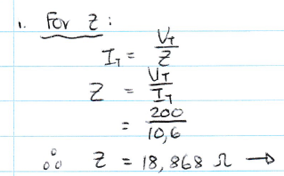 1. For Z :
I_T = V_T / Z
Z = V_T / I_T
= 200 / 10,6
∴ Z = 18,868 Ω →